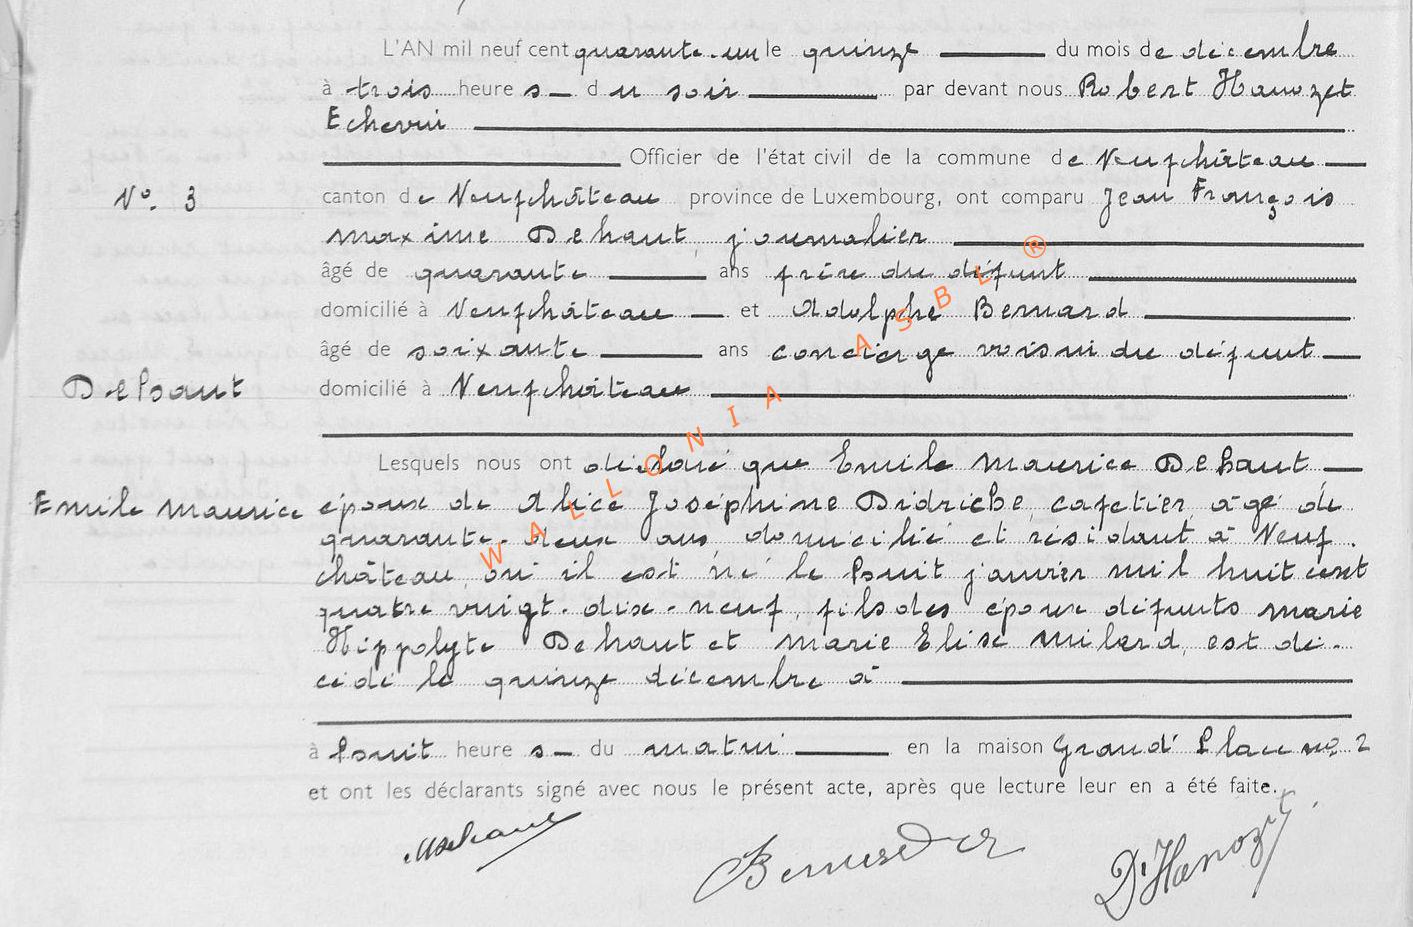 L'AN mil neuf cent quarante-un le quinze du mois de décembre
à trois heures du soir par devant nous Robert Hanozet
Echevin
Officier de l'état civil de la commune de Neufchâteau
N° 3
canton de Neufchâteau province de Luxembourg, ont comparu Jean François
Maxime Dehaut, journalier
âgé de quarante ans frère du défunt
domicilié à Neufchâteau et Adolphe Bernard
âgé de soixante ans concierge voisin du défunt
Dehaut
domicilié à Neufchâteau
Lesquels nous ont déclaré que Emile Maurice Dehaut
Emile Maurice
époux de Alice Joséphine Didriche, cafetier, âgé de
quarante-deux ans domicilié et résidant à Neuf-
château, où il est né le huit janvier mil huit cent
quatre vingt-dix-neuf, fils des époux défunts Marie
Hippolyte Dehaut et Marie Elise Milard, est dé-
cédé le quinze décembre à
à huit heures du matin en la maison Grand'Place no 2
et ont les déclarants signé avec nous le présent acte, après que lecture leur en a été faite.
MDehaut
D'Hanozet
WALLONIA ASBL ®